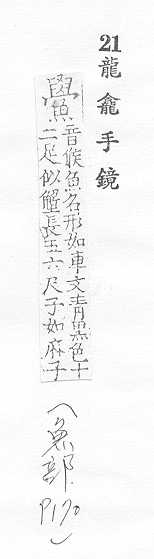 21 龍龕手鏡
鱟音候魚名形如車文青黑色十
二足似解長五六尺子如麻子
(魚部 P170)